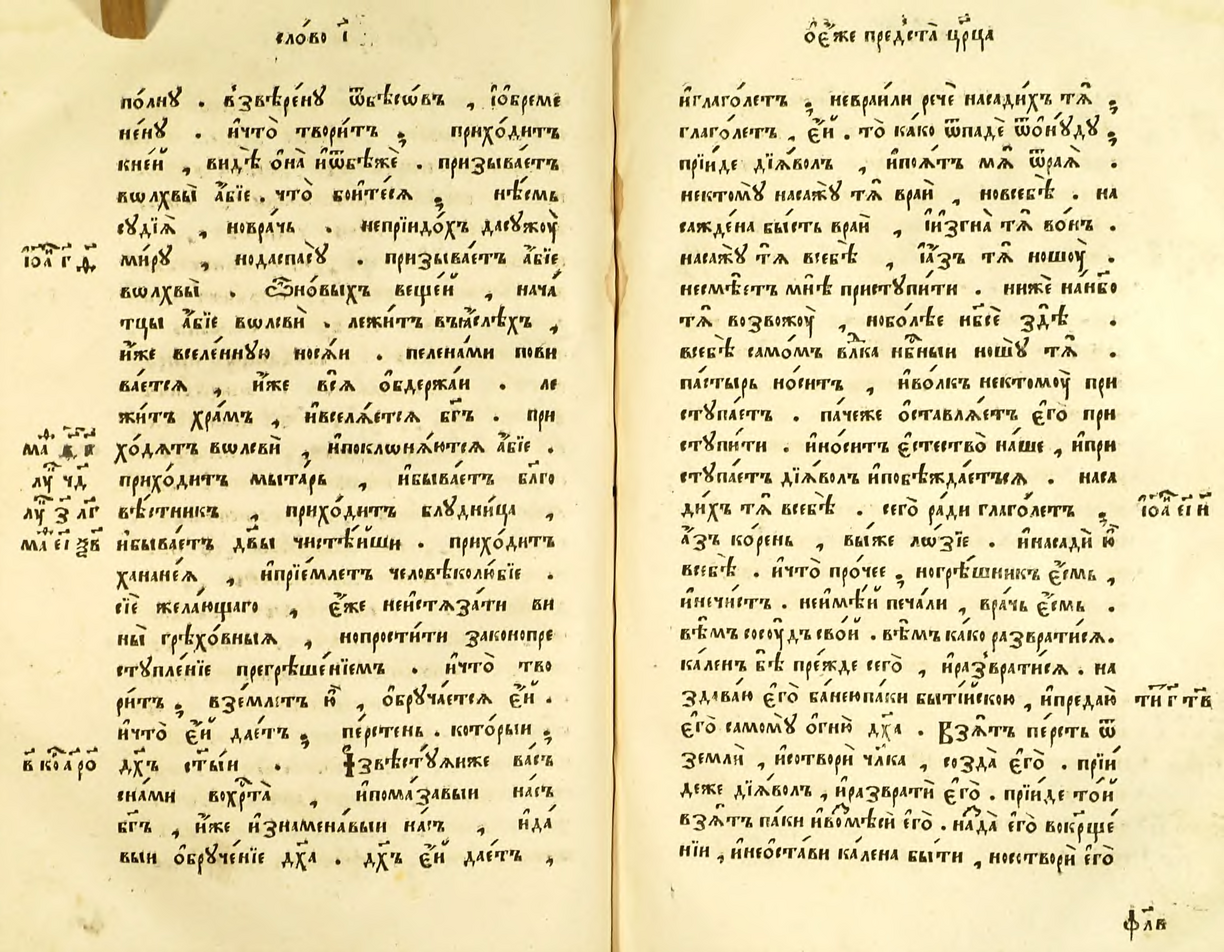 сло́во і҃
по́лнꙋ . в̾звѣре́нꙋ ѿбѣсѡ́въ , і҆ѻ҆бреме
не́нꙋ . и҆что̀ твори́тъ ; прихо́дитъ
кне́й , ви́дѣ ѻ҆на̀ и҆ѿбѣжѐ . призыва́етъ
вѡлхвы̀ а҆́бїе . что̀ бои́тесѧ ; нѣ́смь
сꙋдїѧ̀ , новра́чь . непрїидо́хъ дасꙋжꙋ̀
і҆ѡа҃ г҃
ми́рꙋ , нодаспасꙋ̀ . призыва́етъ а҆́бїе
вѡлхвы̀ . Ѽно́выхъ веще́й , нача́
тцы а҆́бїе вѡлсвѝ . лежи́тъ въꙗ҆́слѣхъ ,
и҆́же вселе́ннꙋю носѧ́и . пелена́ми пови
ва́етсѧ , и҆́же всѧ̀ ѻ҆бдержа́и . ле
жи́тъ хра́мъ , и҆вселѧ́етсѧ бг҃ъ . при
хо́дѧтъ вѡлсвѝ , и҆поклѡнѧ́ютсѧ а҆́бїе .
лꙋ҃ чд҃
прихо́дитъ мыта́рь , и҆быва́етъ бл҃го
лꙋ҃ з҃ лг҃
вѣ́стникъ , прихо́дитъ блꙋдни́ца ,
ма҃ є҃і ѯ҃в
и҆быва́етъ дв҃ы чистѣ́йши . прихо́дитъ
ханане́ѧ , и҆прїе́млетъ человѣколю́бїе .
сїѐ жела́ющаго , є҆́же неи҆стѧза́ти ви
ны̀ грѣхо́вныѧ , нопрости́ти законопре
стꙋпле́нїе прегрѣше́нїемъ . и҆что̀ тво
ри́тъ ; взе́млѧтъ ю҆̀ , ѻ҆брꙋча́етсѧ є҆́й .
и҆что̀ є҆́й дае́тъ ; пе́рстень . кото́рыи ;
в҃ ко҃ а҃ р҃о
дх҃ъ ст҃ы́и . І҆звѣ́стꙋѧиже ва́съ
сна́ми вохрⷭ҇та̀ , и҆пома́завыи на́съ
бг҃ъ , и҆́же и҆знамена́выи на́съ , и҆да́
выи ѻ҆брꙋче́нїе дх҃а . дх҃ъ є҆́й дае́тъ ,
ѻ҆є҆́же предста̀ цр҃ца
и҆глаго́летъ ; невраи́ли речѐ насади́хъ тѧ̀ ;
глаго́летъ , є҆́й . то̀ ка́ко ѿпадѐ ѿѻ҆нꙋ́дꙋ ;
прїи́де дїѧ́волъ , и҆поѧ́тъ мѧ̀ ѿраѧ̀ .
нектомꙋ̀ насажꙋ̀ тѧ̀ враѝ , новсебѣ̀ . на
сажде́на бы́сть враѝ , і҆и҆згна̀ тѧ̀ во́нъ .
насажꙋ̀ тѧ̀ всебѣ̀ , і҆а҆́зъ тѧ̀ ношꙋ̀ .
несмѣ́етъ мнѣ̀ пристꙋпи́ти . ниже на́нб҃о
тѧ̀ возвожꙋ̀ , нобо́лѣе нб҃сѐ здѣ̀ .
всебѣ̀ само́мъ влⷣка нбⷭ҇ныи ношꙋ̀ тѧ̀ .
па́стырь но́ситъ , и҆во́лкъ нектомꙋ̀ при
стꙋпа́етъ . па́чеже ѻ҆ставлѧ́етъ є҆го̀ при
стꙋпи́ти . и҆но́ситъ є҆стество̀ на́ше , и҆при
стꙋпа́етъ дїѧ́волъ и҆побѣжда́етъсѧ . наса
ди́хъ тѧ̀ всебѣ̀ . сего̀ ра́ди глаго́летъ ;
і҆ѡа҃ є҃і и҃
а҆́зъ ко́рень , вы́же лѡзїе . и҆насадѝ ю҆̀
всебѣ̀ . и҆что̀ про́чее ; ногрѣ́шникъ є҆́смь ,
и҆нечи́стъ . неи҆мѣ́й печа́ли , вра́чь є҆́смь .
вѣ́мъ сосꙋ́дъ сво́й . вѣ́мъ ка́ко разврати́сѧ .
ка́ленъ бѣ̀ пре́жде сего̀ , и҆развратѝсѧ . на
здава́ю є҆го̀ ба́неюпаки быті́йскою , и҆предаю̀
ти҃ г҃ т҃в
є҆го̀ самомꙋ̀ ѻ҆гню̀ дх҃а . Взѧ́тъ пе́рсть ѿ
землѝ , и҆сотворѝ чл҃ка , созда̀ є҆го̀ . прїи́
деже дїѧ́волъ , и҆развратѝ є҆го̀ . прїи́де то́й
взѧ́тъ па́ки и҆вомѣсѝ є҆го̀ . назда̀ є҆го̀ вокрⷭ҇ще́
нїи , и҆неѻ҆ста́ви ка́лена бы́ти , носотворѝ є҆го̀
ф҃лв